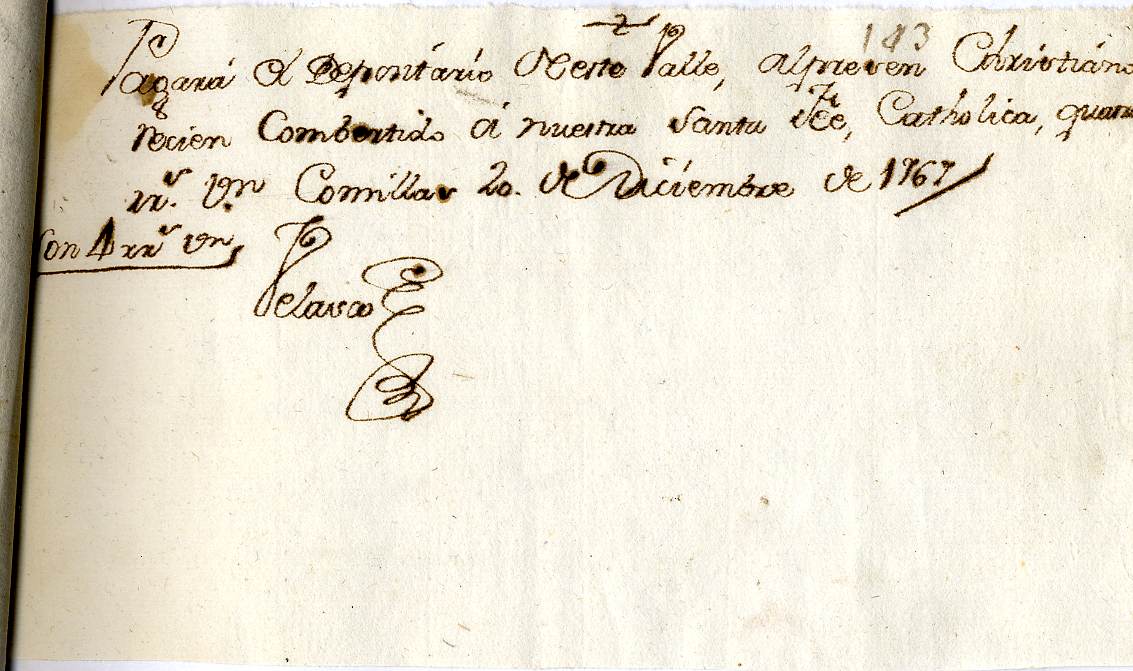 143
Pagará el Depositário deeste Valle, alpresen Christiáno
recien Combertido á nuestra Santa Fee, Catholica, quatro
rr.s vn Comillas 20. de Diciembre de 1767
Son 4 rr.s vn,
Velasco